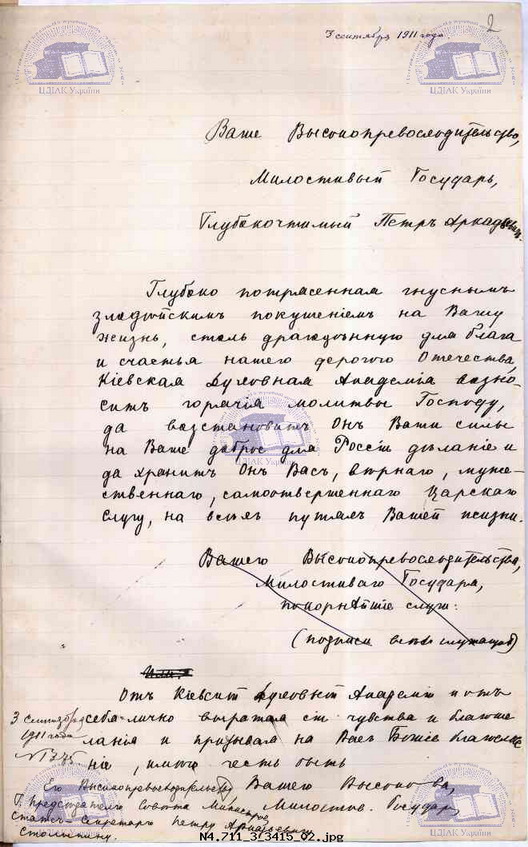 2
3 сентября 1911 года.
Ваше Высокопревосходительство,
Милостивый Государь,
Глубокочтимый Петръ Аркадьевичъ.
Глубоко потрясенная гнуснымъ
злодѣйскимъ покушеніемъ на Вашу
жизнь, столь драгоцѣнную для блага
и счастья нашего дорогого Отечества,
Кіевская Духовная Академія возно-
ситъ горячія молитвы Господу,
да возстановитъ Онъ Ваши силы
на Ваше доброе для Россіи дѣланіе и
да хранитъ Онъ Васъ, вѣрнаго, муже-
ственнаго, самоотверженнаго Царскаго
слугу, на всѣхъ путяхъ Вашей жизни.
Вашего Высокопревосходительства,
Милостиваго Государя,
покорнѣйшіе слуги:
(подписи всѣхъ служащихъ)
Отъ Кіевской Духовной Академіи и отъ
себя лично выражая сіи чувства и благоже-
ланія и призывая на Васъ Божіе благослове-
ніе, имѣю честь быть
Вашего Высоко-ва,
Милостив. Государ
3 сентября
1911 года
№ 1375
Его Высокопревосходительству
Г. председателю Совѣта Министровъ,
Статсъ-Секретарю Петру Аркадьевичу
Столыпину.
ЦДІАК України
ЦДІАК України
ЦДІАК України
N4.711_3/3415_02.jpg